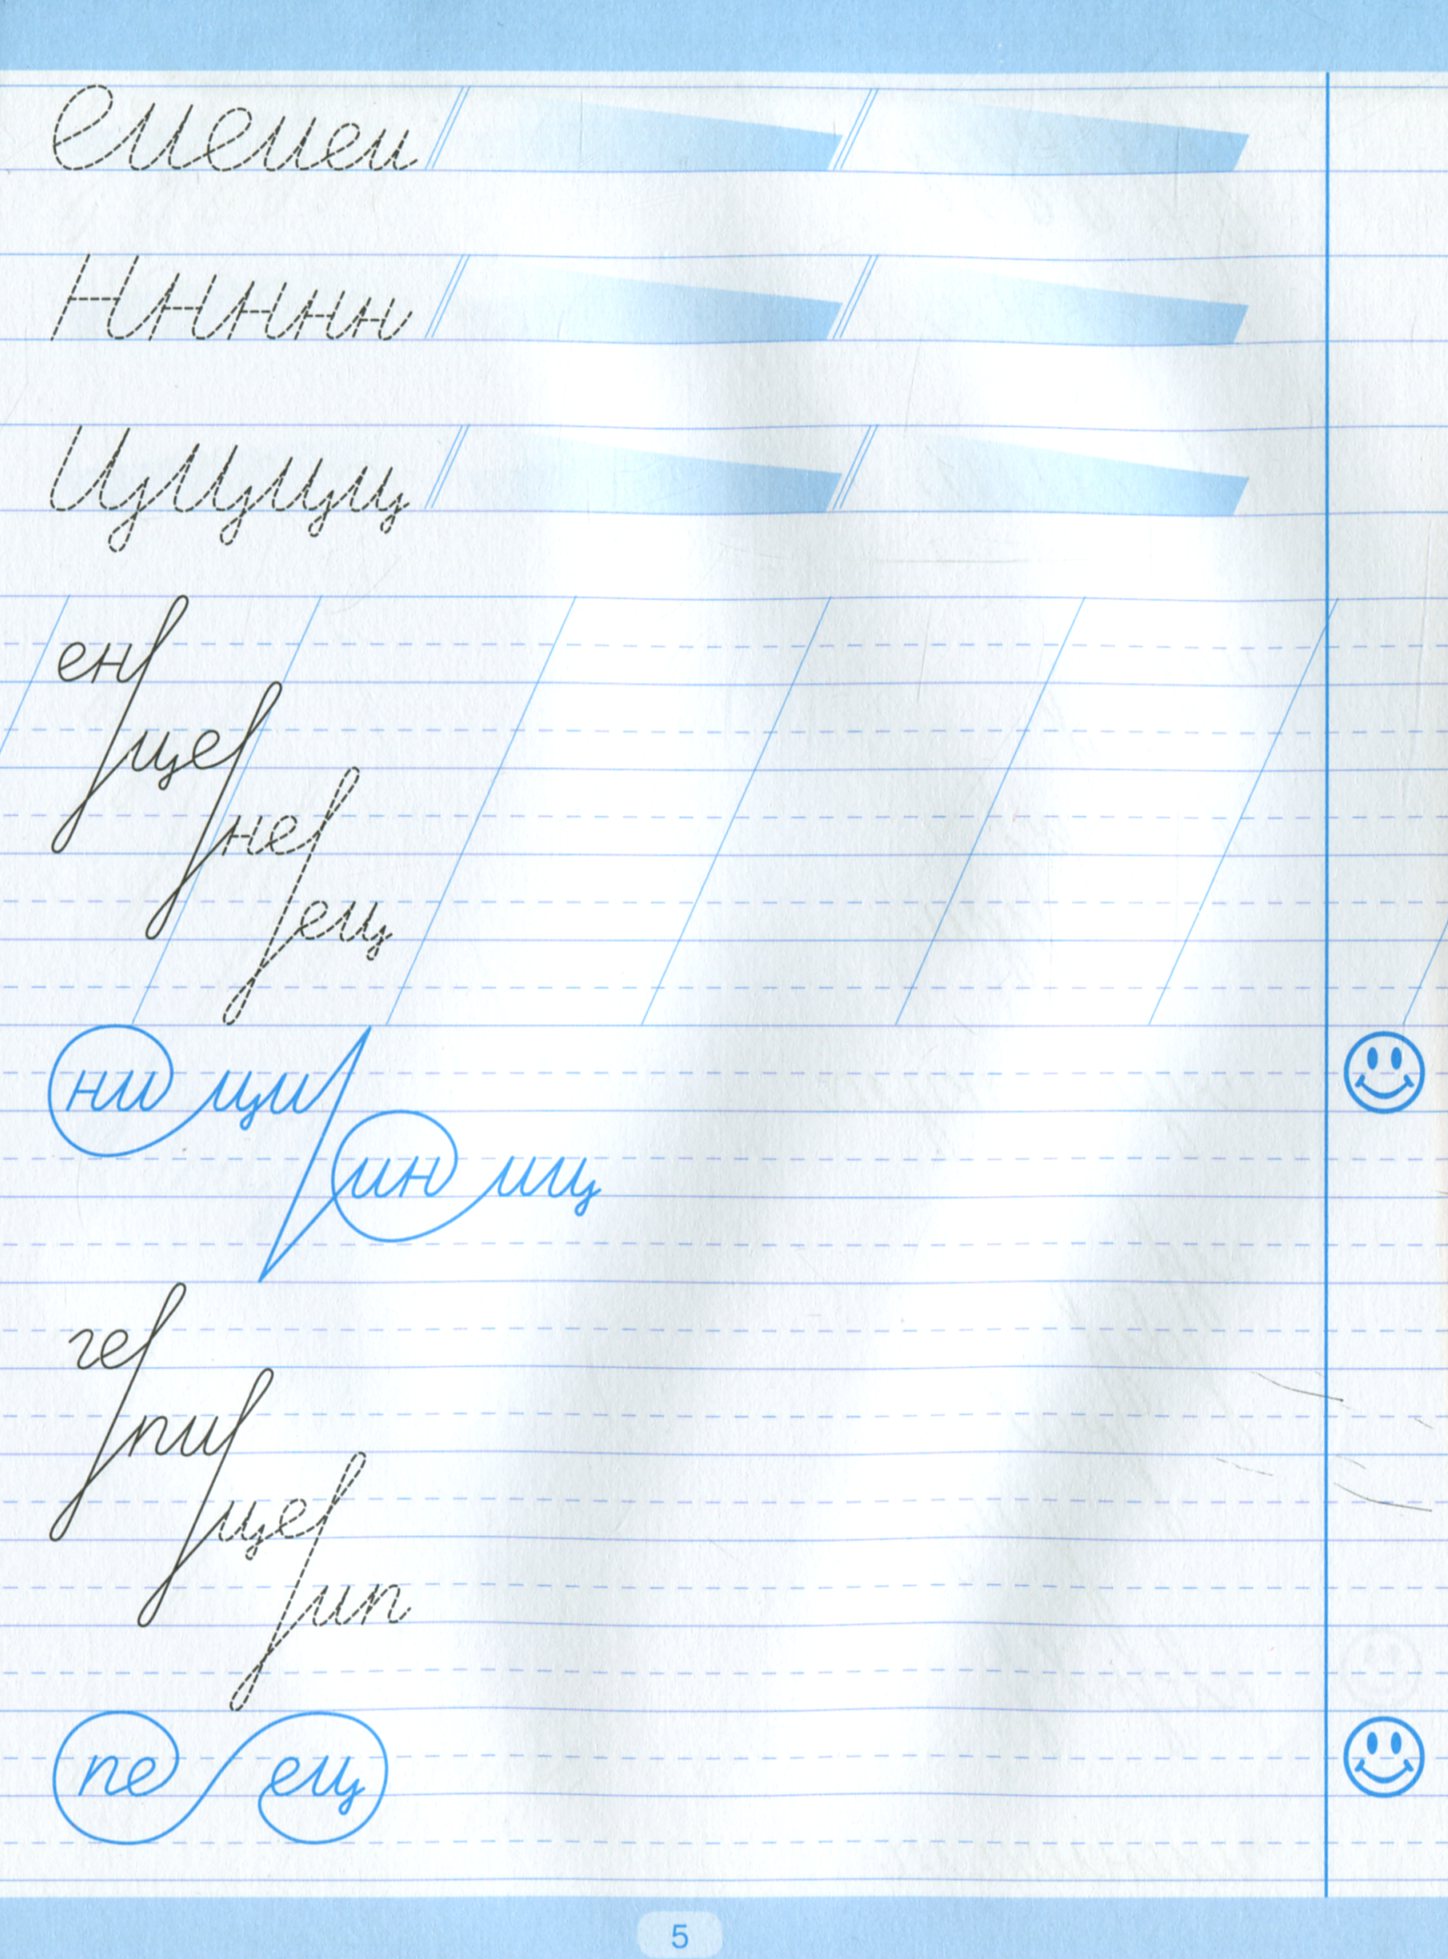 еиеиеи
ннннн
цццц
ен
це
не
ец
ни ци
ин иц
ге
пи
це
ип
пе ец
5